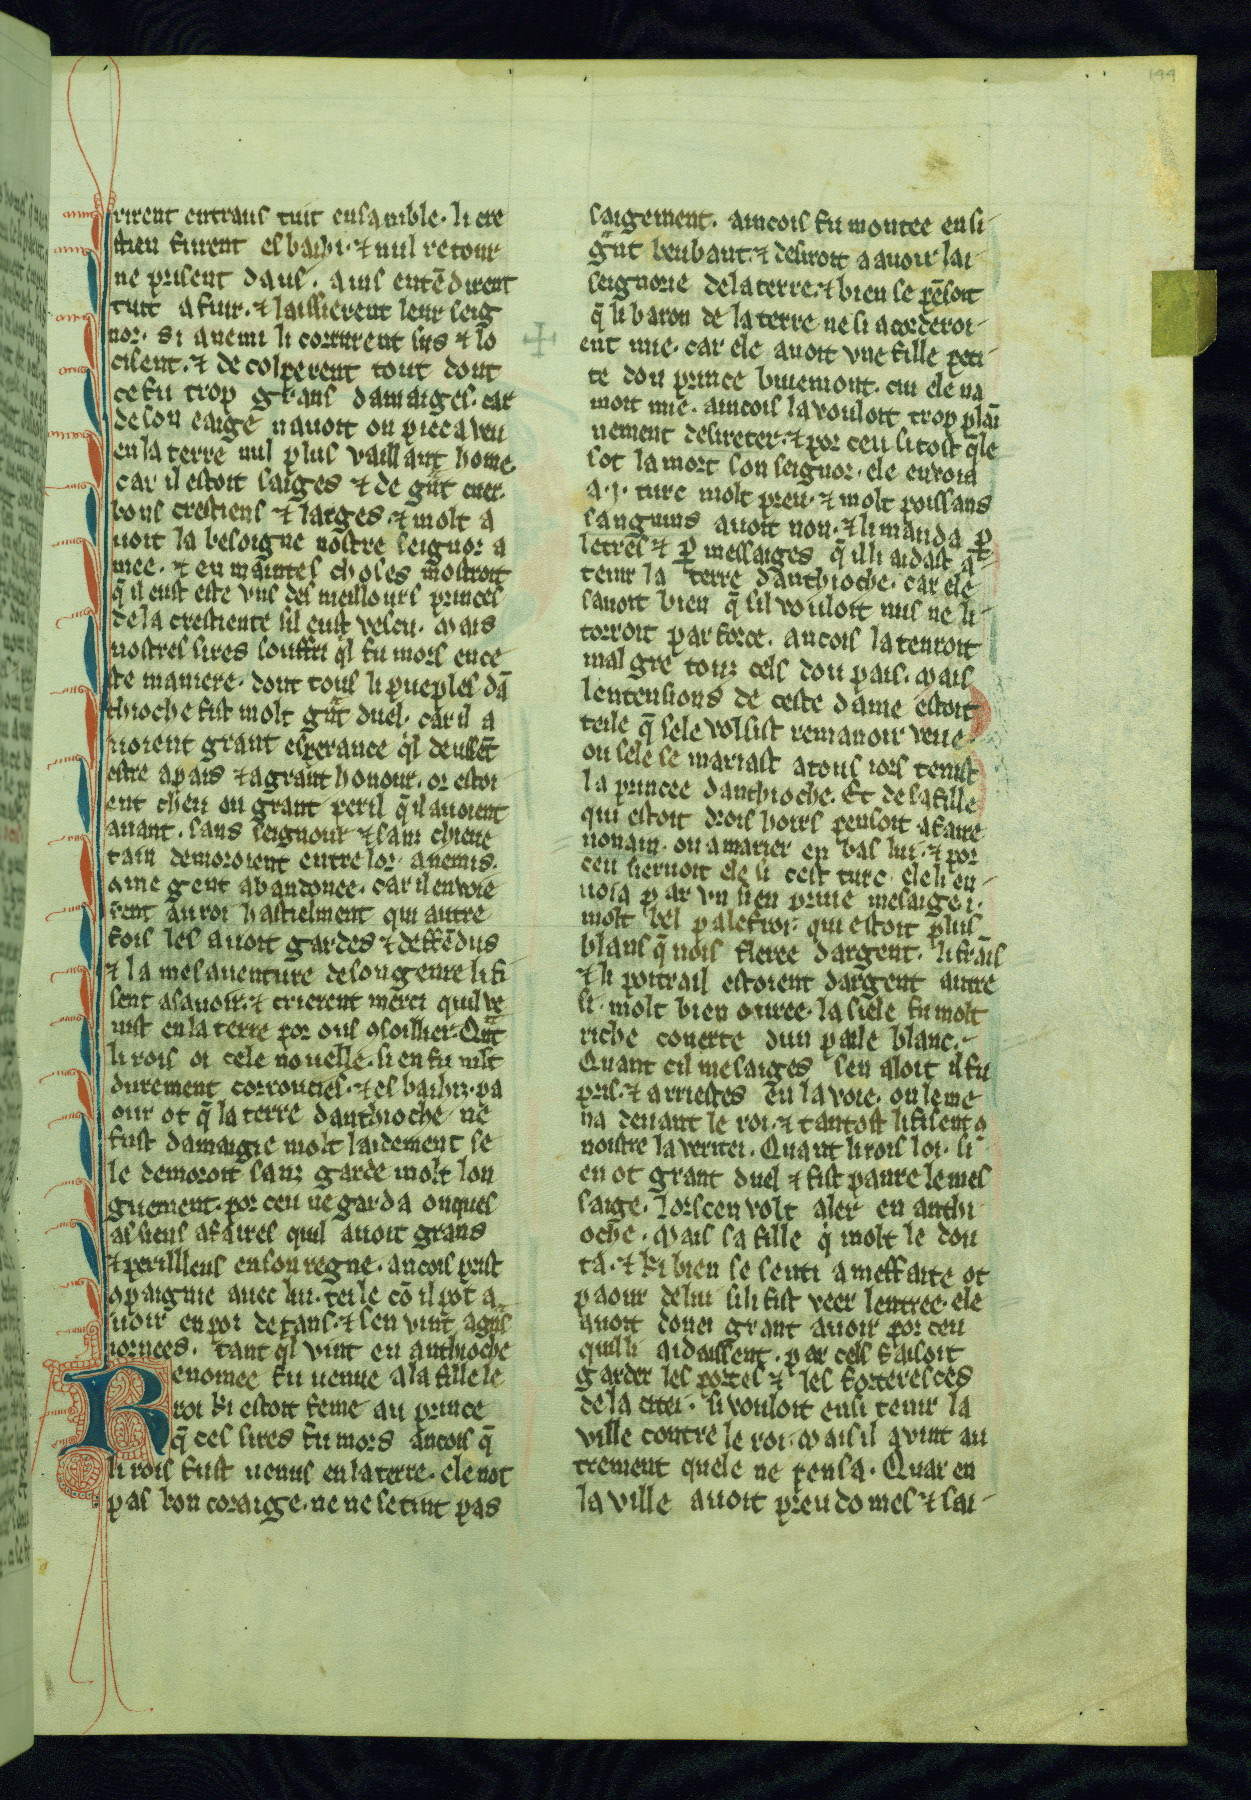 rirent entrauls tuit ensamble. li cre
stien furent esbahi. ⁊ nul retour
ne prisent dauls. ains entēdirent
tuit a fuir. ⁊ laissierent leur seig
nor. Si anemi li corrurent sus ⁊ lo
cisent. ⁊ decolperent tout dont
ce fu trop grans damaiges. car
de son eaige nauoit on pieca veu
en la terre nul plus vaillant home
car il estoit saiges ⁊ de gñt cuer.
bons crestiens ⁊ larges. ⁊ molt a
uoit la besoigne nostre seignor a
mee. ⁊ en maintes choses mostroit
q̄ il eust este vns des meillours princes
de la crestiente sil eust vescu. Mais
nostres sires souffri ql fu mors en ce
ste maniere. dont tous li pueples dā
thioche fist molt gñt duel. car il a
uoient grant esperance ql deussēt
estre a pais ⁊ a grant honour. or estoi
ent cheu ou grant peril q̄ il auoient
auant. sans seignour ⁊ sanz chieue
tain demoroient entre lor anemis.
gent abandonee. car il enuoie
rent au roi hastielment qui autre
fois les auoit gardes ⁊ deffēdus
⁊ la mesauenture de son genre li fi
sent asauoir. ⁊ crierent merci quil ve
nist en la terre por ous gsoillier. Qn̄t
li rois oi cele nouelle. si en fu mlt
durement corroucies. ⁊ esbahiz. pa
our ot q̄ la terre danthioche ne
fust damaigie molt laidement se
le demoroit sanz garde molt lon
guement. por ceu ne garda onques
as siens afaires quil auoit grans
⁊ perillleus en son regne. ancois prist
gpaignie auec lui. teile cō il pot a
uoir en poi de tans. ⁊ sen vint a gñs
iornees. tant ql vint en anthioche
Renomee fu uenue a la fille le
roi ki estoit feme au prince
q̄ ces sires fu mors ancois q̄
li rois fust uenus en la terre. ele not
pas bon coraige. ne ne se tint pas
saigement. aincois fu montee en si
gñt beubant. ⁊ desiroit a auoir la
seignorie de la terre. ⁊ bien se pēsoit
q̄ li baron de la terre ne si acorderoi
ent mie. car ele auoit vne fille peti
te dou prince buiemont. cui ele na
moit mie. aincois la vouloit trop plai
nement desireter. ⁊ por ceu si tost qle
sot la mort son seignor. ele envoia
a .j. turc molt preu. ⁊ molt poissans
sanguins auoit non. ⁊ li manda p
letres ⁊ p messaiges q̄ il li aidast a
tenir la terre danthioche. car ele
sauoit bien q̄ sil vouloit nus ne li
torroit par force. ancois la tenroit
mal gre touz cels dou pais. Mais
lentensions de ceste dame estoit
teile q̄ sele volsist remanoir veue.
ou sele se mariast a tous iors tenist
la princee danthioche. Et de sa fille
qui estoit drois hoirs pensoit a faire
nonain. ou a marier en bas lui. ⁊ por
ceu seruoit ele si cest turc. ele li en
uoia par vn sien priue mesaige .i.
molt bel palefroi. qui estoit plus
blans q̄ nois fieree dargent. li frais
⁊ li poitrail estoient dargent autre
si. molt bien ouree. la siele fu molt
riche couerte dun paile blanc.
Quant cil mesaiges sen aloit il fu
pris. ⁊ arriestes en la voie. on le me
na deuant le roi. ⁊ tantost li fisent g
noistre la veritei. Quant li rois loi. si
en ot grant duel ⁊ fist panre le mes
saige. lors en volt aler en anthi
oche. Mais sa fille q̄ molt le dou
ta. ⁊ ki bien se senti a meffaite ot
paour de lui si li fist veer lentree. ele
auoit donei grant auoir por ceu
quil li aidaissent. par cels faisoit
garder les portes ⁊ les forteresces
de la citei. si vouloit ensi tenir la
ville contre le roi. Mais il avint au
trement quele ne pensa. Quar en
la ville auoit preudomes ⁊ sai
144